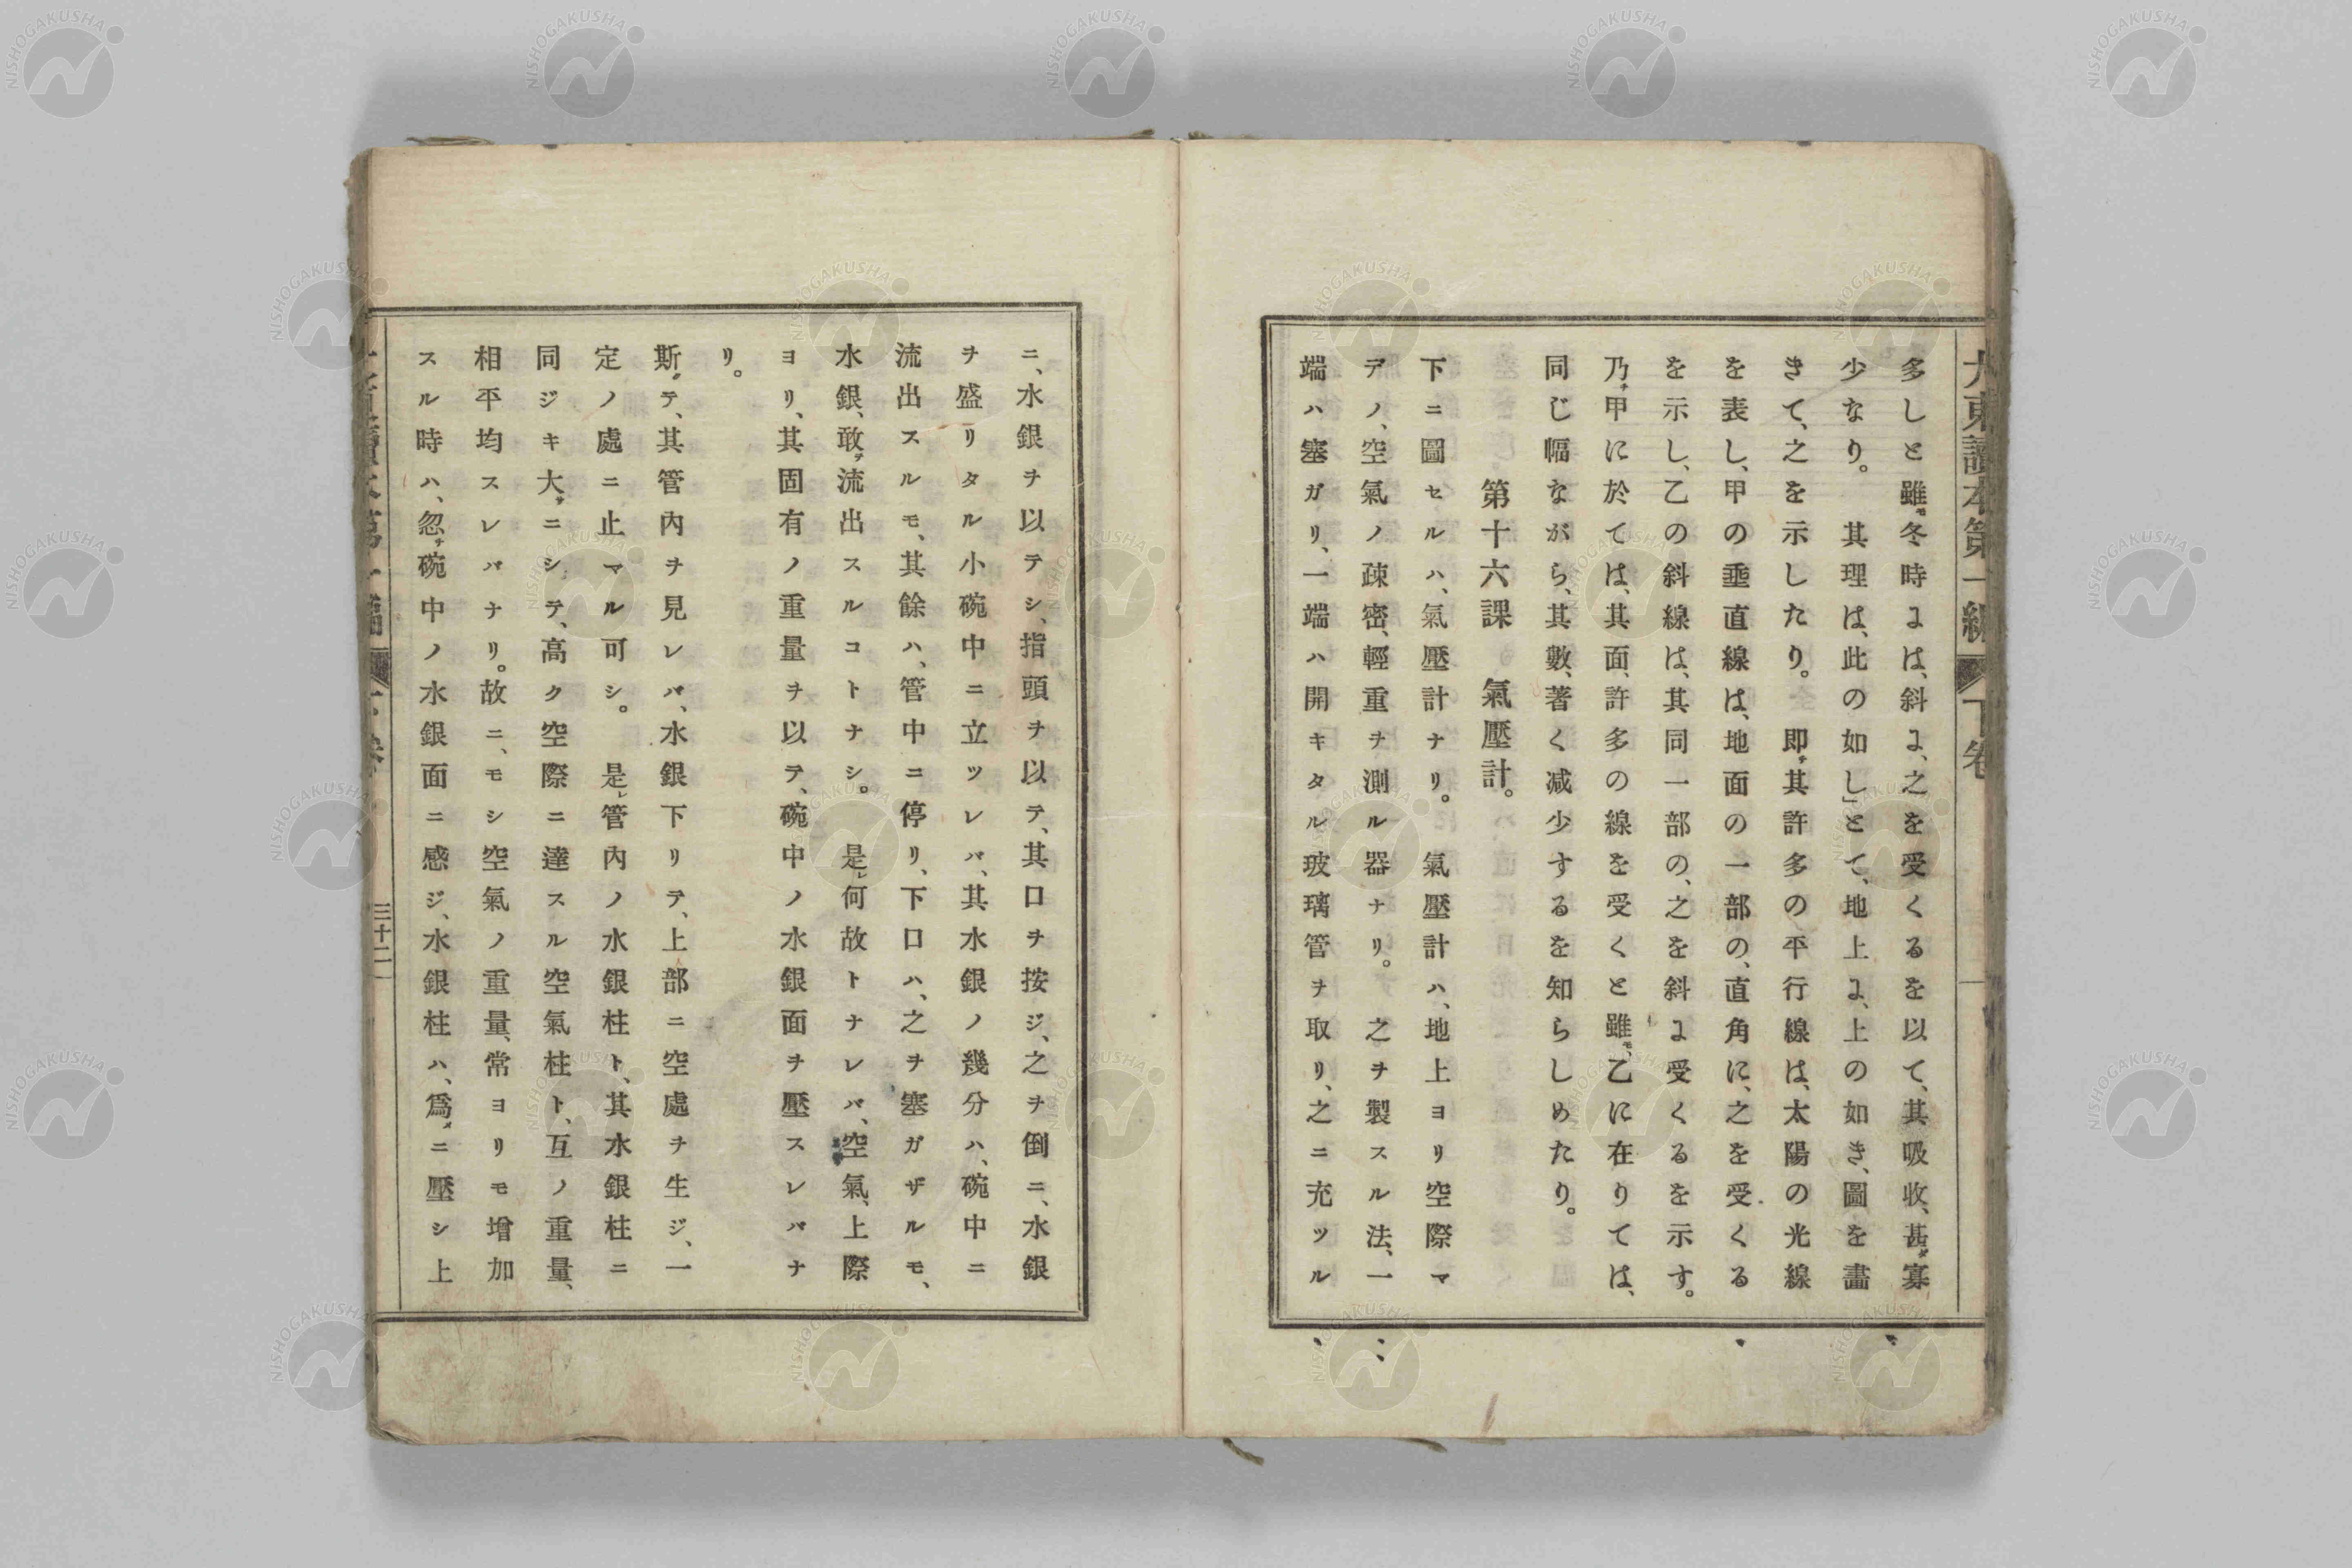 大東讀本第一編 下卷
多しと雖モ冬時には、斜に、之を受くるを以て、其吸收、甚ダ寡
少なり。 其理は、此の如し」とて、地上に、上の如き、圖を畵
きて、之を示したり。 即チ其許多の平行線は、太陽の光線
を表し、甲の垂直線は、地面の一部の、直角に、之を受くる
を示し、乙の斜線は、其同一部の、之を斜に受くるを示す。
乃チ甲に於ては、其面、許多の線を受くと雖モ、乙に在りては、
同じ幅ながら、其數、著く減少するを知らしめたり。
第十六課 氣壓計。
下ニ圖セルハ、氣壓計ナリ。 氣壓計ハ、地上ヨリ空際マ
デノ、空氣ノ疎密、輕重ヲ測ル器ナリ。 之ヲ製スル法、一
端ハ塞ガリ、一端ハ開キタル玻璃管ヲ取リ、之ニ充ツル
ニ、水銀ヲ以テシ、指頭ヲ以テ、其口ヲ按ジ、之ヲ倒ニ、水銀
ヲ盛リタル小碗中ニ立ツレバ、其水銀ノ幾分ハ、碗中ニ
流出スルモ、其餘ハ、管中ニ停リ、下口ハ、之ヲ塞ガザルモ、
水銀、敢テ流出スルコトナシ。 是レ何故トナレバ、空氣、上際
ヨリ、其固有ノ重量ヲ以テ、碗中ノ水銀面ヲ壓スレバナ
リ。
斯クテ、其管內ヲ見レバ、水銀下リテ、上部ニ空處ヲ生ジ、一
定ノ處ニ止マル可シ。 是レ管內ノ水銀柱ト、其水銀柱ニ
同ジキ大サニシテ、高ク空際ニ達スル空氣柱ト、互ノ重量、
相平均スレバナリ。故ニ、モシ空氣ノ重量、常ヨリモ增加
スル時ハ、忽チ碗中ノ水銀面ニ感ジ、水銀柱ハ、爲メニ壓シ上
三十二
NISHOGAKUSHA